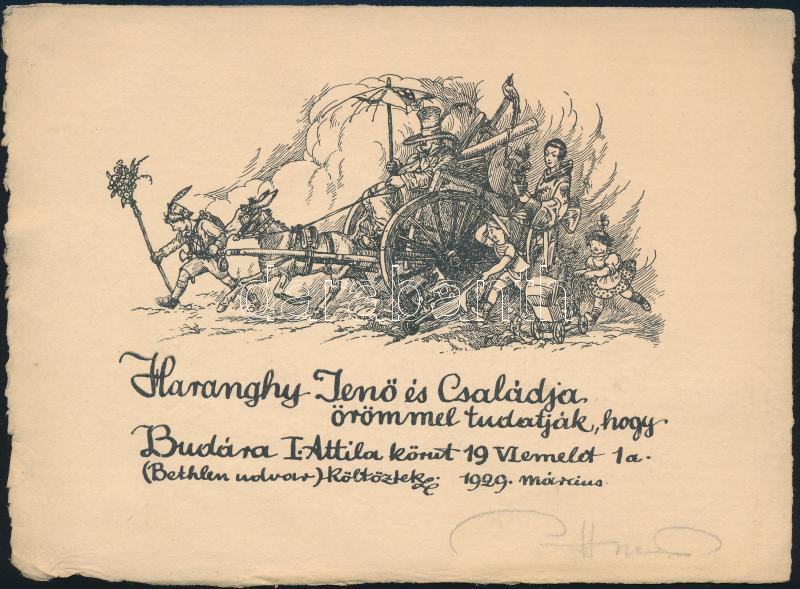 darabanth
Haranghy Jenő és Családja
örömmel tudatják, hogy
Budára I. Attila körut 19 VI emelet 1a.
(Bethlen udvar) költöztek. 1929. március